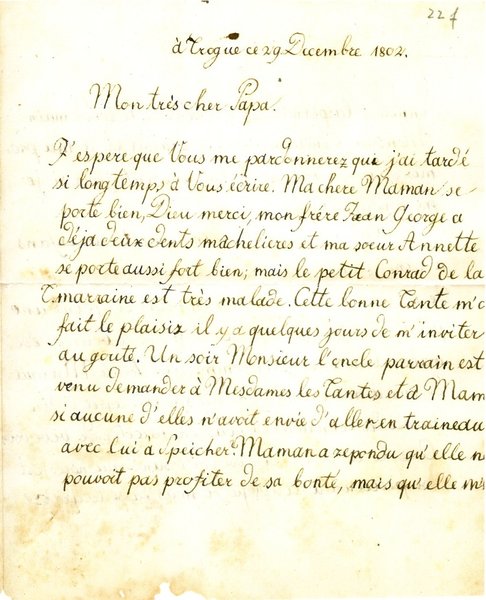 22 f
à Trogue ce 29 Dicembre 1802.
Mon très cher Papa.
J'espere que Vous me pardonnerez qui j'ai tardé
si longtemps à Vous écrire. Ma chere Maman se
porte bien, Dieu merci, mon frére Jean George a
déja deux dents mâchelieres et ma soeur Annette
se porte aussi fort bien; mais le petit Conrad de la
T. marraine est très malade. Cette bonne Tante m'a
fait le plaisir il y a quelques jours de m'inviter
au goûté. Un soir Monsieur l'oncle parrain est
venu demander à Mesdames les Tantes et à Mam
si aucune d'elles n'avoit envie d'aller en traineau
avec lui à Speicher. Maman a repondu qu'elle n
pouvoit pas profiter de sa bonté, mais qu'elle m'